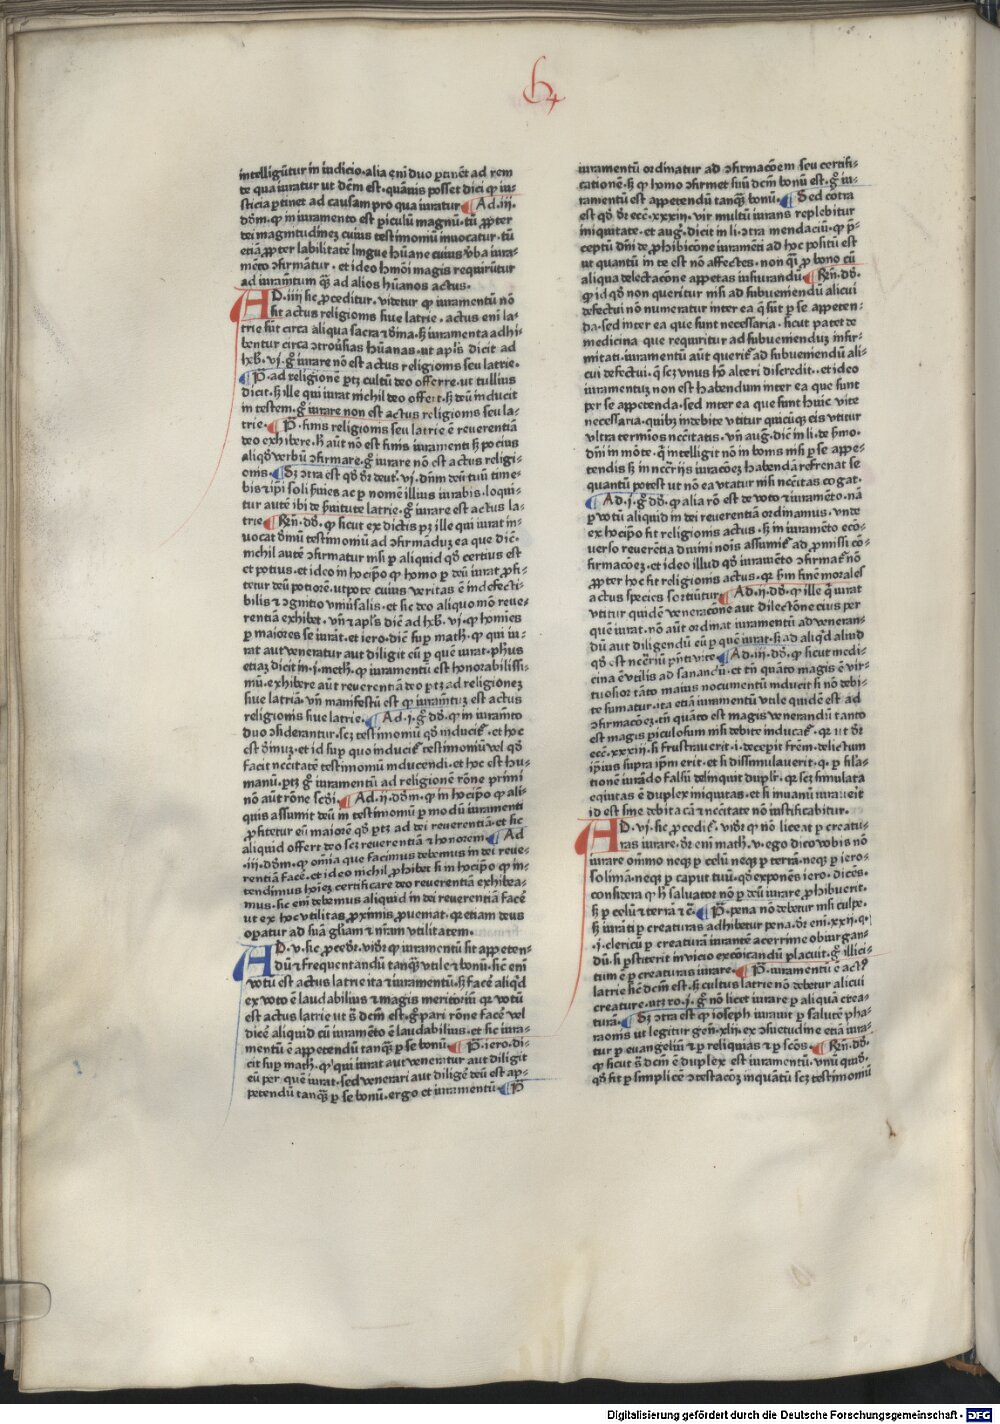 intelligũtur in iudicio · alia eni duo ꝑtinẽt ad rem
te qua iuratur ut dc̃m est · quãuis posset dici ꝙ iu-
sticia ꝑtinet ad causam pro qua iuratur ¶ Ad · iii ·
dõm · ꝙ in iuramento est ꝑiculũ magnũ · tũ ꝓpter
dei magnitudinez cuius testimoniũ inuocatur · tũ
etiã ꝓpter labilitatẽ lingue hũane cuius v̾ba iura-
mẽto ↄfirmãtur · et ideo hmõi magis requirũtur
ad iuram̃tum q̃ꝫ ad alios hũanos actus ·
AD · iiii sic ꝓceditur · videtur ꝙ iuramentũ nõ
sit actus religionis siue latrie · actus eni la-
trie sũt circa aliqua sacra ⁊ diuina · sꝫ iuramenta adhi
bentur circa ↄtrou̾sias hũanas · ut apl̃s dicit ad
hb̾ · vj · gͦ iurare nõ est actus religionis seu latrie ·
¶ P̃ · ad religionẽ ptꝫ cultũ deo offerre · ut tullius
dicit · sꝫ ille qui iurat nichil deo offert · sꝫ deũ inducit
in testem · gͦ iurare non est actus religionis seu la-
trie · ¶ P̃ · finis religionis seu latrie ẽ reuerentiã
deo exhibere · sꝫ aũt nõ est finis iuramenti sꝫ pocius
aliqd̾ verbũ ↄfirmare · gͦ iurare nõ est actus religi-
onis · ¶ Sꝫ ↄtra est qd̾ dr̃ deut̾ · vj · dñm deũ tuũ time-
bis ⁊ ip̃i soli s̾uies ac ꝑ nomẽ illius iurabis · loqui-
tur autẽ ibi de s̾uitute latrie · gͦ iurare est actus la-
trie ¶ Rñ · dõ · ꝙ sicut ex dictis ptꝫ ille qui iurat in-
uocat diuinũ testimoniũ ad ↄfirmãduꝫ ea que dic̃ ·
nichil autẽ ↄfirmatur nisi ꝑ aliquid qd̾ certius est
et potius · et ideo in hoc ip̃o ꝙ homo ꝑ deũ iurat ꝓfi-
tetur deũ potiorẽ · utpote cuius veritas ẽ indefecti-
bilis ⁊ ↄgnitio vniu̾salis · et sic deo aliquo mõ reue-
rentiã exhibet · vñ ⁊ apl̃s dic̃ ad hb̾ · vi · ꝙ homĩes
ꝑ maiores se iurãt · et iero · dic̃ suꝑ math · ꝙ qui iu-
rat aut veneratur aut diligit eũ ꝑ quẽ iurat · ph̃us
etiaꝫ dicit in · j · meth · ꝙ iuramentũ est honorabilissi-
mũ · exhibere aũt reuerentiã deo ptꝫ ad religionez
siue latriã · vñ manifestũ est ꝙ iuram̃tuꝫ est actus
religionis siue latrie · ¶ Ad · j · gͦ dõ · ꝙ in iuram̃to
duo ↄsiderantur · scꝫ testimoniũ qd̾ inducit̾ · et hoc
est diuinuꝫ · et id suꝑ quo inducit̾ testimoniũ vel qd̾
facit nc̃citatẽ testimoniũ inducendi · et hoc est hu-
manũ · ptꝫ gͦ iuramentũ ad religionẽ rõne primi
nõ aũt rõne scd̾i ¶ Ad · ii · dõm · ꝙ in hoc ip̃o ꝙ ali-
quis assumit deũ in testimoniũ ꝑ modũ iuramenti
ꝓfitetur eũ maiorẽ qd̾ ptꝫ ad dei reuerentiã · et sic
aliquid offert deo scꝫ reuerentiã ⁊ honorem ¶ Ad
· iii · dõm · ꝙ om̃ia que facimus debemus in dei reue-
rentiã facẽ · et ideo nichil ꝓhibet si in hoc ip̃o ꝙ in-
tendimus hoĩeꝫ certificare deo reuerentiã exhibea-
mus · sic eni debemus aliquid in dei reuerentiã facẽ
ut ex hoc utilitas ꝓximis ꝓueniat · qr̾ etiam deus
oꝑatur ad suã gl̃iam ⁊ nr̃am utilitatem ·
AD · v · sic ꝓcedr̾ · vidr̾ ꝙ iuramentũ sit appeten-
dũ ⁊ frequentandũ tanq̃ꝫ vtile ⁊ bonũ · sic eni
votũ est actus latrie ita ⁊ iuramentũ · sꝫ facẽ aliqd̾
ex voto ẽ laudabilius ⁊ magis meritoriũ qr̾ votũ
est actus latrie ut s̾ dc̃m est · gͦ pari rõne facẽ vel
dicẽ aliquid cũ iuramẽto ẽ laudabilius · et sic iura-
mentũ ẽ appetendũ tanq̃ꝫ ꝑ se bonũ ¶ P̃ · iero · di-
cit suꝑ math · ꝙ qui iurat aut veneratur aut diligit
eũ per quẽ iurat · sed venerari aut diligẽ deũ est ap-
petendũ tanq̃ꝫ ꝑ se bonũ · ergo et iuramentũ ¶ P̃
iuramentũ ordinatur ad ↄfirmacõem seu certifi-
cationẽ · sꝫ ꝙ homo ↄfirmet suũ dc̃m bonũ est · gͦ iu-
ramentũ est appetendũ tanq̃ꝫ bonũ · ¶ Sed cõtra
est qd̾ dr̃ ecc̾ · xxxiii · vir multũ iurans replebitur
iniquitate · et aug̾ · dicit in li · ↄtra mendaciũ · ꝙ p̃-
ceptũ dñi de ꝓhibicõne iuram̃ti ad hoc positũ est
ut quantũ in te est nõ affectes · non q̃si ꝓ bono cũ
aliqua delectacõne appetas iusiurandũ ¶ Rñ · dõ ·
ꝙ id qd̾ non queritur nisi ad subueniendũ alicui
defectui nõ numeratur inter ea q̃ sũt ꝑ se appeten-
da · sed inter ea que sunt necessaria · sicut patet de
medicina que requiritur ad subueniendũ infir-
mitati · iuramentũ aũt querit̾ ad subueniendũ ali-
cui defectui · q̃ scꝫ vnus hõ alteri discredit · et ideo
iuramentuꝫ non est habendum inter ea que sunt
per se appetenda · sed inter ea que sunt huic vite
necessaria · quibꝫ indebite vtitur quicũqꝫ eis vtitur
vltra terminos nc̃citatis · vñ aug̾ · dic̃ in li · de s̾mo ·
dñi in mõte · q̃ intelligit nõ in bonis nisi ꝑ se appe-
tendis sꝫ in nc̃c̾iis iuracõeꝫ habendã refrenat se
quantũ potest ut nõ ea vtatur nisi nc̃citas cogat ·
¶ Ad · j · gͦ dõ · ꝙ alia rõ est de voto ⁊ iuramẽto · nã
ꝑ votũ aliquid in dei reuerentiã ordinamus · vnde
ex hoc ip̃o fit religionis actus · sꝫ in iuramẽto ecõ-
uerso reuerẽtia diuini nõis assumit̾ ad ꝓmissi cõ-
firmacõeꝫ · et ideo illud qd̾ iuramẽto ↄfirmat̾ nõ
ꝓpter hoc fit religionis actus · qr̾ s̾m finẽ morales
actus species sortiũtur ¶ Ad · ii · dõ · ꝙ ille q̃ iurat
vtitur quidẽ veneracõne aut dilectõne eius per
quẽ iurat · nõ aũt ordinat iuramentũ ad veneran-
dũ aut diligendũ eũ ꝑ quẽ iurat · sꝫ ad aliqd̾ aliud
qd̾ est nc̃c̾iũ p̃nti vite ¶ Ad · iii · dõ · ꝙ sicut medi-
cina ẽ vtilis ad sanandũ · et tñ quãto magis ẽ vir-
tuosior tãto maius nocumentũ inducit si nõ debi-
te sumatur · ita etiã iuramentũ vtile quidẽ est ad
ↄfirmacõeꝫ · tñ quãto est magis venerandũ tanto
est magis ꝑiculosum nisi debite inducat̾ · qr̾ ut dr̃
ecc̾ · xxxiii · si frustrauerit · i · decepit fr̃em · delictum
ip̃ius supra ip̃m erit · et si dissimulauerit · q · ꝑ sil̃a-
tionẽ iurãdo falsũ delinquit dupl̃r · qr̾ scꝫ simulata
eqitas ẽ duplex iniquitas · et si inuanũ iurau̾it
id est sine debita cã ⁊ nc̃citate nõ iustificabitur ·
AD · vj · sic ꝓcedit̾ · vidr̾ ꝙ nõ liceat ꝑ creatu-
ras iurare · dr̃ eni math · v · ego dico vobis nõ
iurare om̃ino neqꝫ ꝑ celũ neqꝫ ꝑ terrã · neqꝫ ꝑ iero-
solimã · neqꝫ ꝑ caput tuũ · qd̾ exponẽs iero · dic̃es ·
considera ꝙ h̾ saluator nõ ꝑ deũ iurare ꝓhibuerit ·
sꝫ ꝑ celũ ⁊ terrã ⁊ c̃ · ¶ P̃ · pena nõ debetur nisi culpe ·
sꝫ iurãti ꝑ creaturas adhibetur pena · dr̃ eni · xxii · q ·
· j · clericũ ꝑ creaturã iurantẽ acerrime obiurgan-
dũ · si ꝑstiterit in vicio excõicandũ placuit · gͦ illici-
tum ẽ ꝑ creaturas iurare · ¶ P̃ · iuramentũ ẽ actꝰ
latrie sic̃ dc̃m est · sꝫ cultus latrie nõ debetur alicui
creature · ut ꝫ ro · j · gͦ nõ licet iurare ꝑ aliquã crea-
turã · ¶ Sꝫ ↄtra est ꝙ ioseph iurauit ꝑ salutẽ pha-
raonis ut legitur gen̾ · xlii · ex ↄsuetudine etiã iura-
tur ꝑ euangeliũ ⁊ ꝑ reliquias ⁊ ꝑ sc̃os · ¶ Rñ · dõ ·
ꝙ sicut s̾ dc̃m ẽ duplex est iuramentũ · vnũ quid̾ ·
qd̾ fit ꝑ simplicẽ ↄtestacõeꝫ inquãtũ scꝫ testimoniũ
Digitalisierung gefördert durch die Deutsche Forschungsgemeinschaft · DFG